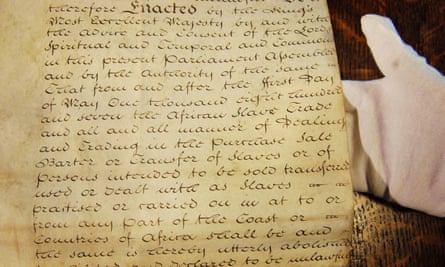 therefore Enacted by the Kings
Most Excellent Majesty by and with
the Advice and Consent of the Lords
Spiritual and Temporal and Commons
in this present Parliament Assembled
and by the Authority of the same
That from and after the first Day
of May One thousand eight hundred
and seven the African Slave Trade
and all and all manner of Dealing
and Trading in the Purchase Sale
Barter or Transfer of Slaves or of
persons intended to be sold transferred
used or dealt with as Slaves
practised or carried on in at to or
from any part of the Coast or
Countries of Africa shall be and
the same is hereby utterly abolished
and declared to be unlawful